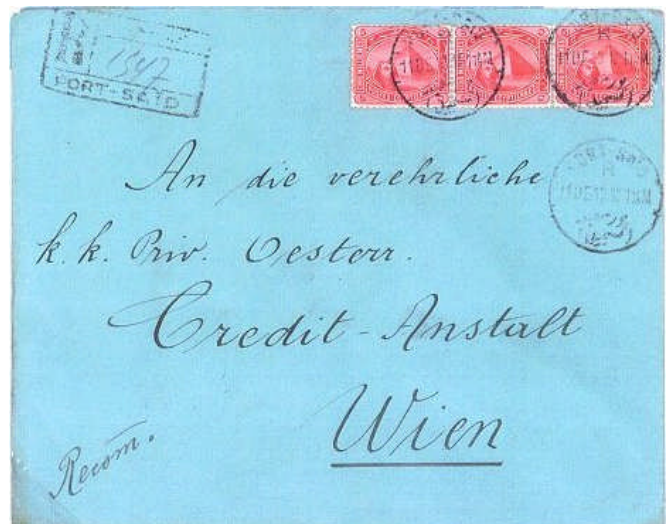 1347
PORT-SAID
PORT-SAID
An die verehrliche
k. k. Priv. Oesterr.
Credit-Anstalt
Wien
Recom.